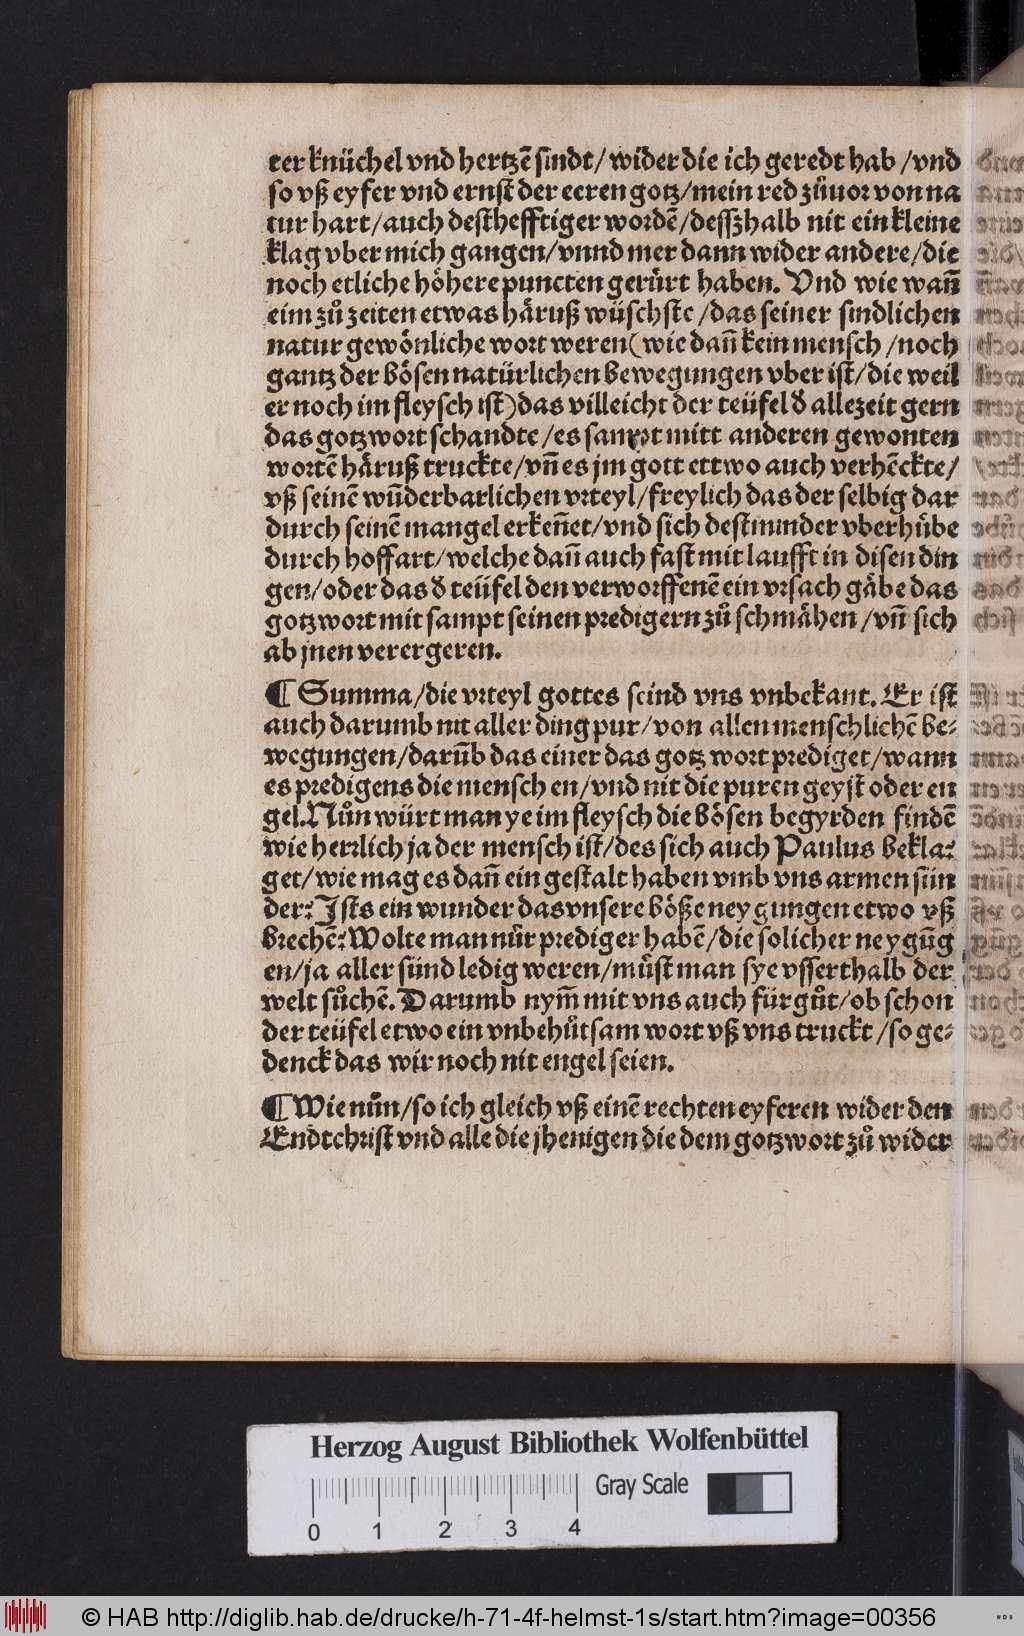 ter knüchel vnd hertzē sindt / wider die ich geredt hab / vnd
so vß eyfer vnd ernst der eeren gotz / mein red zůuor von na
tur hart / auch desthefftiger wordē / desszhalb nit ein kleine
klag vber mich gangen / vnnd mer dann wider andere / die
noch etliche höhere puncten gerůrt haben. Vnd wie wañ
eim zů zeiten etwas häruß wüschste / das seiner sindlichen
natur gewönliche wort weren (wie dañ kein mensch / noch
gantz der bösen natürlichen bewegungen vber ist / die weil
er noch im fleysch ist) das villeicht der teüfel d̕ allezeit gern
das gotzwort schandte / es sampt mitt anderen gewonten
wortē häruß truckte / vñ es jm gott ettwo auch verhēckte /
vß seinē wūderbarlichen vrteyl / freylich das der selbig dar
durch seinē mangel erkeñet / vnd sich destminder vberhübe
durch hoffart / welche dañ auch fast mit laufft in disen din
gen / oder das d̕ teüfel den verworffenē ein vrsach gäbe das
gotzwort mit sampt seinen predigern zů schmähen / vñ sich
ab jnen verergeren.
¶ Summa / die vrteyl gottes seind vns vnbekant. Er ist
auch darumb nit aller ding pur / von allen menschlichē be⸗
wegungen / darūb das einer das gotz wort prediget / wann
es predigens die mensch en / vnd nit die puren geyst oder en
gel. Nůn würt man ye im fleysch die bösen begyrden findē
wie herrlich ja der mensch ist / des sich auch Paulus bekla⸗
get / wie mag es dañ ein gestalt haben vmb vns armen sün
der? Ists ein wunder das vnsere böße ney gungen etwo vß
brechē? Wolte man nůr prediger habē / die solicher neygūg
en / ja aller sünd ledig weren / můst man sye vsserthalb der
welt sůchē. Darumb nym̄ mit vns auch für gůt / ob schon
der teüfel etwo ein vnbehůtsam wort vß vns truckt / so ge⸗
denck das wir noch nit engel seien.
¶ Wie nůn / so ich gleich vß einē rechten eyferen wider den
Endtchrist vnd alle die jhenigen die dem gotzwort zů wider
Herzog August Bibliothek Wolfenbüttel
Gray Scale
0 1 2 3 4
© HAB http://diglib.hab.de/drucke/h-71-4f-helmst-1s/start.htm?image=00356